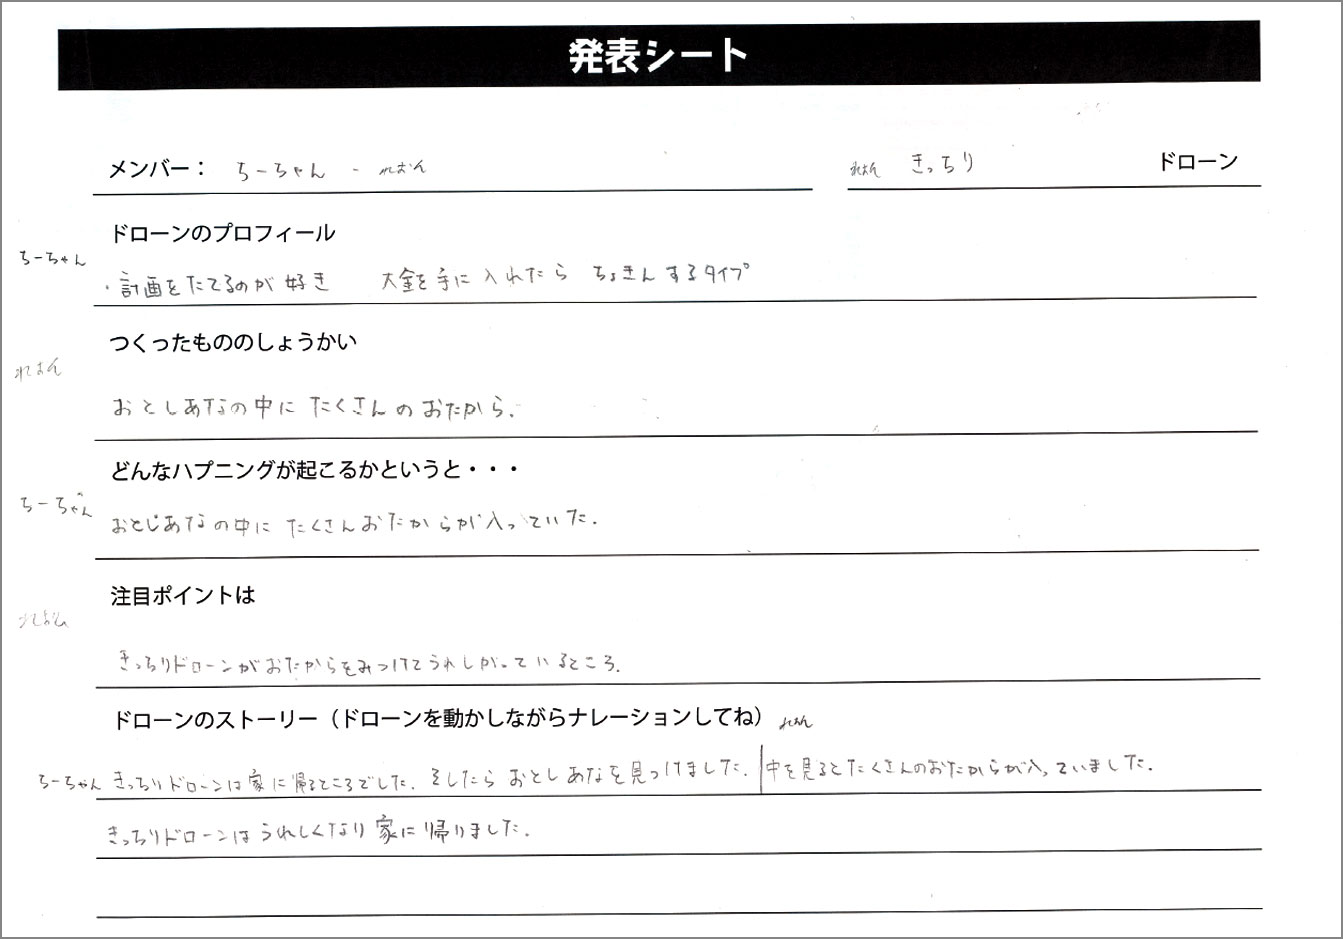 発表シート
メンバー： ちーちゃん - れおん れおん きっちり ドローン
ドローンのプロフィール
ちーちゃん
・計画をたてるのが好き 大金を手に入れたら ちょきんするタイプ
つくったもののしょうかい
れおん
おとしあなの中に たくさんのおたから.
どんなハプニングが起こるかというと・・・
ちーちゃん
おとしあなの中に たくさんおたからが入っていた.
注目ポイントは
れおん
きっちりドローンがおたからをみつけてうれしがっているところ.
ドローンのストーリー（ドローンを動かしながらナレーションしてね） れおん
ちーちゃん きっちりドローンは家に帰るところでした. そしたら おとしあなを見つけました. 中を見るとたくさんのおたからが入っていました.
きっちりドローンはうれしくなり家に帰りました.